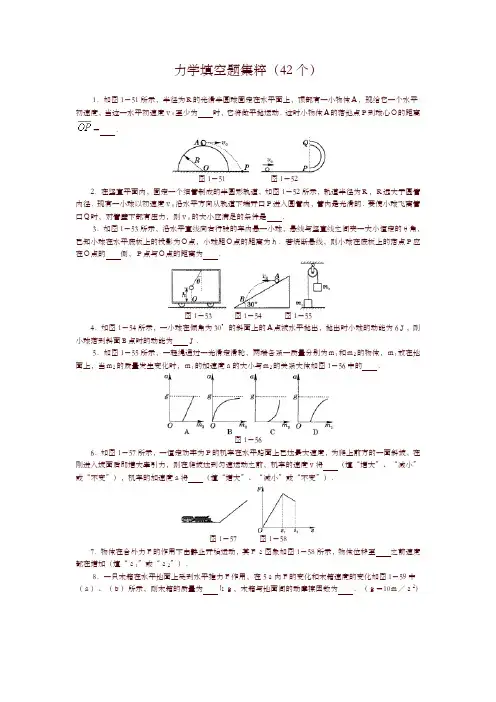 力学填空题集粹（42个）
1．如图1－51所示，半径为R的光滑半圆球固定在水平面上，顶部有一小物体A，现给它一个水平
初速度，当这一水平初速度v0至少为　　时，它将做平抛运动．这时小物体A的落地点P到球心O的距离
OP＝　　．
A v0 R O P Q v0 P
图1－51 图1－52
2．在竖直平面内，固定一个细管制成的半圆形轨道，如图1－52所示，轨道半径为R，R远大于圆管
内径．现有一小球以初速度v0沿水平方向从轨道下端开口P进入圆管内，管内是光滑的．要使小球飞离管
口Q时，对管壁下部有压力，则v0的大小应满足的条件是　　．
3．如图1－53所示，沿水平直线向右行驶的车内悬一小球，悬线与竖直线之间夹一大小恒定的θ角，
已知小球在水平底板上的投影为O点，小球距O点的距离为h．若烧断悬线，则小球在底板上的落点P应
在O点的　　侧，P点与O点的距离为　　．
θ h O v0 A B 30° m1 m2
图1－53 图1－54 图1－55
4．如图1－54所示，一小球在倾角为30°的斜面上的A点被水平抛出，抛出时小球的动能为6J，则
小球落到斜面B点时的动能为　　J．
5．如图1－55所示，一轻绳通过一光滑定滑轮，两端各系一质量分别为m1和m2的物体，m1放在地
面上，当m2的质量发生变化时，m1的加速度a的大小与m2的关系大体如图1－56中的　　．
a g O m2 a g O m2 a g O m2 a g O m2
A B C D
图1－56
6．如图1－57所示，一恒定功率为P的机车在水平路面上已达最大速度，为爬上前方的一面斜坡，在
刚进入坡面后即增大牵引力，则在爬坡达到匀速运动之前，机车的速度v将　　（填“增大”、“减小”
或“不变”），机车的加速度a将　　（填“增大”、“减小”或“不变”）．
F O s1 s2 s
图1－57 图1－58
7．物体在合外力F的作用下由静止开始运动，其F-s图象如图1－58所示，物体位移至　　之前速度
都在增加（填“s1”或“s2”）．
8．一只木箱在水平地面上受到水平推力F作用，在5s内F的变化和木箱速度的变化如图1－59中
（a）、（b）所示，则木箱的质量为　　kg，木箱与地面间的动摩擦因数为　　．（g＝10m／s2）